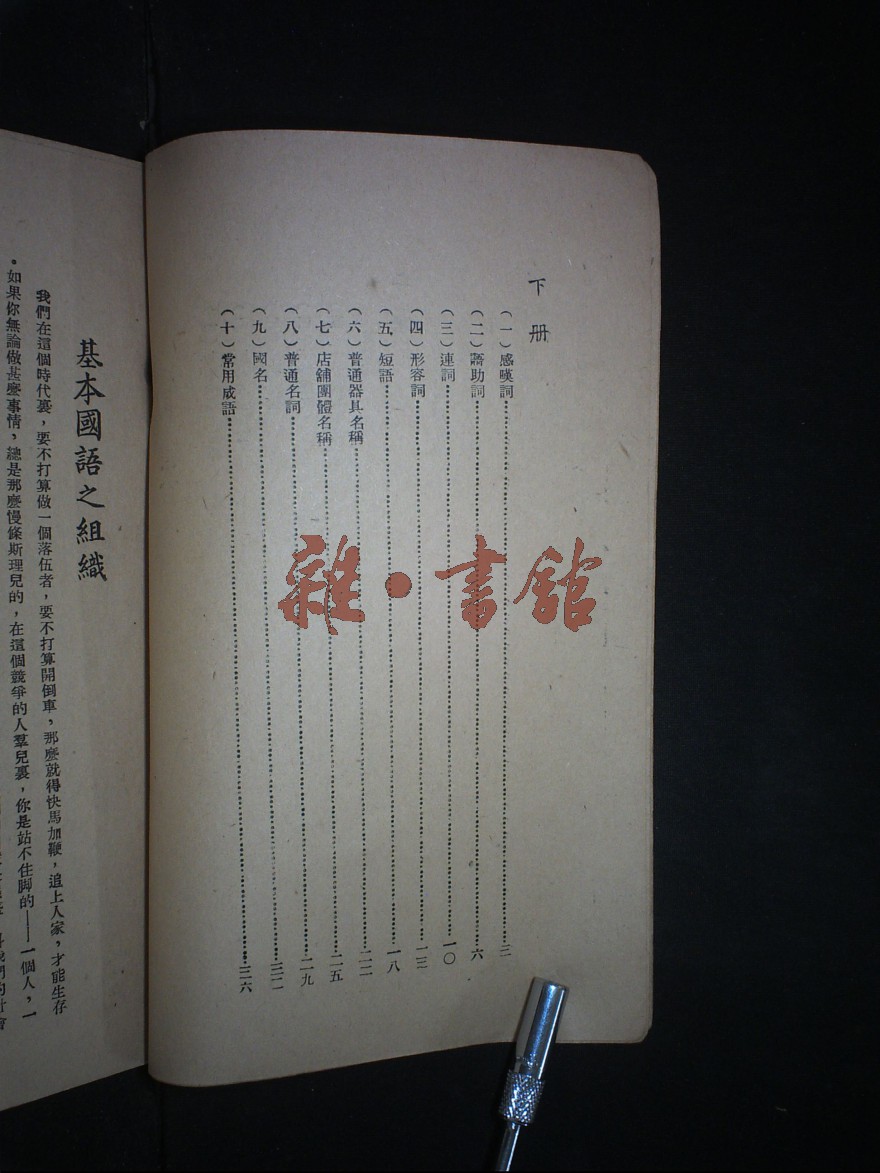 下册
(一)感嘆詞……三
(二)語助詞……六
(三)連詞……一〇
(四)形容詞……一三
(五)短語……一八
(六)普通器具名稱……二二
(七)店舖團體名稱……二五
(八)普通名詞……二九
(九)國名……三二
(十)常用成語……三六
雜·書館
基本國語之組織
我們在這個時代裏,要不打算做一個落伍者,要不打算開倒車,那麼就得快馬加鞭,追上人家,才能生存
。如果你無論做甚麼事情,總是那麼慢條斯理兒的,在這個競爭的人羣兒裏,你是站不住脚的——一個人,一